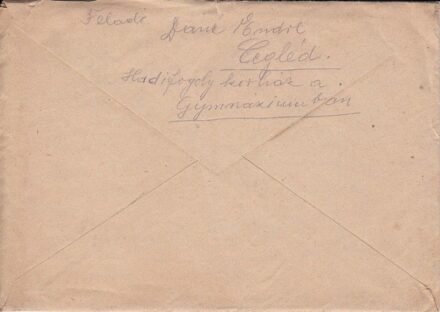 Feladó Dani Endre
Cegléd.
Hadifogoly kórház a.
Gymnáziumban